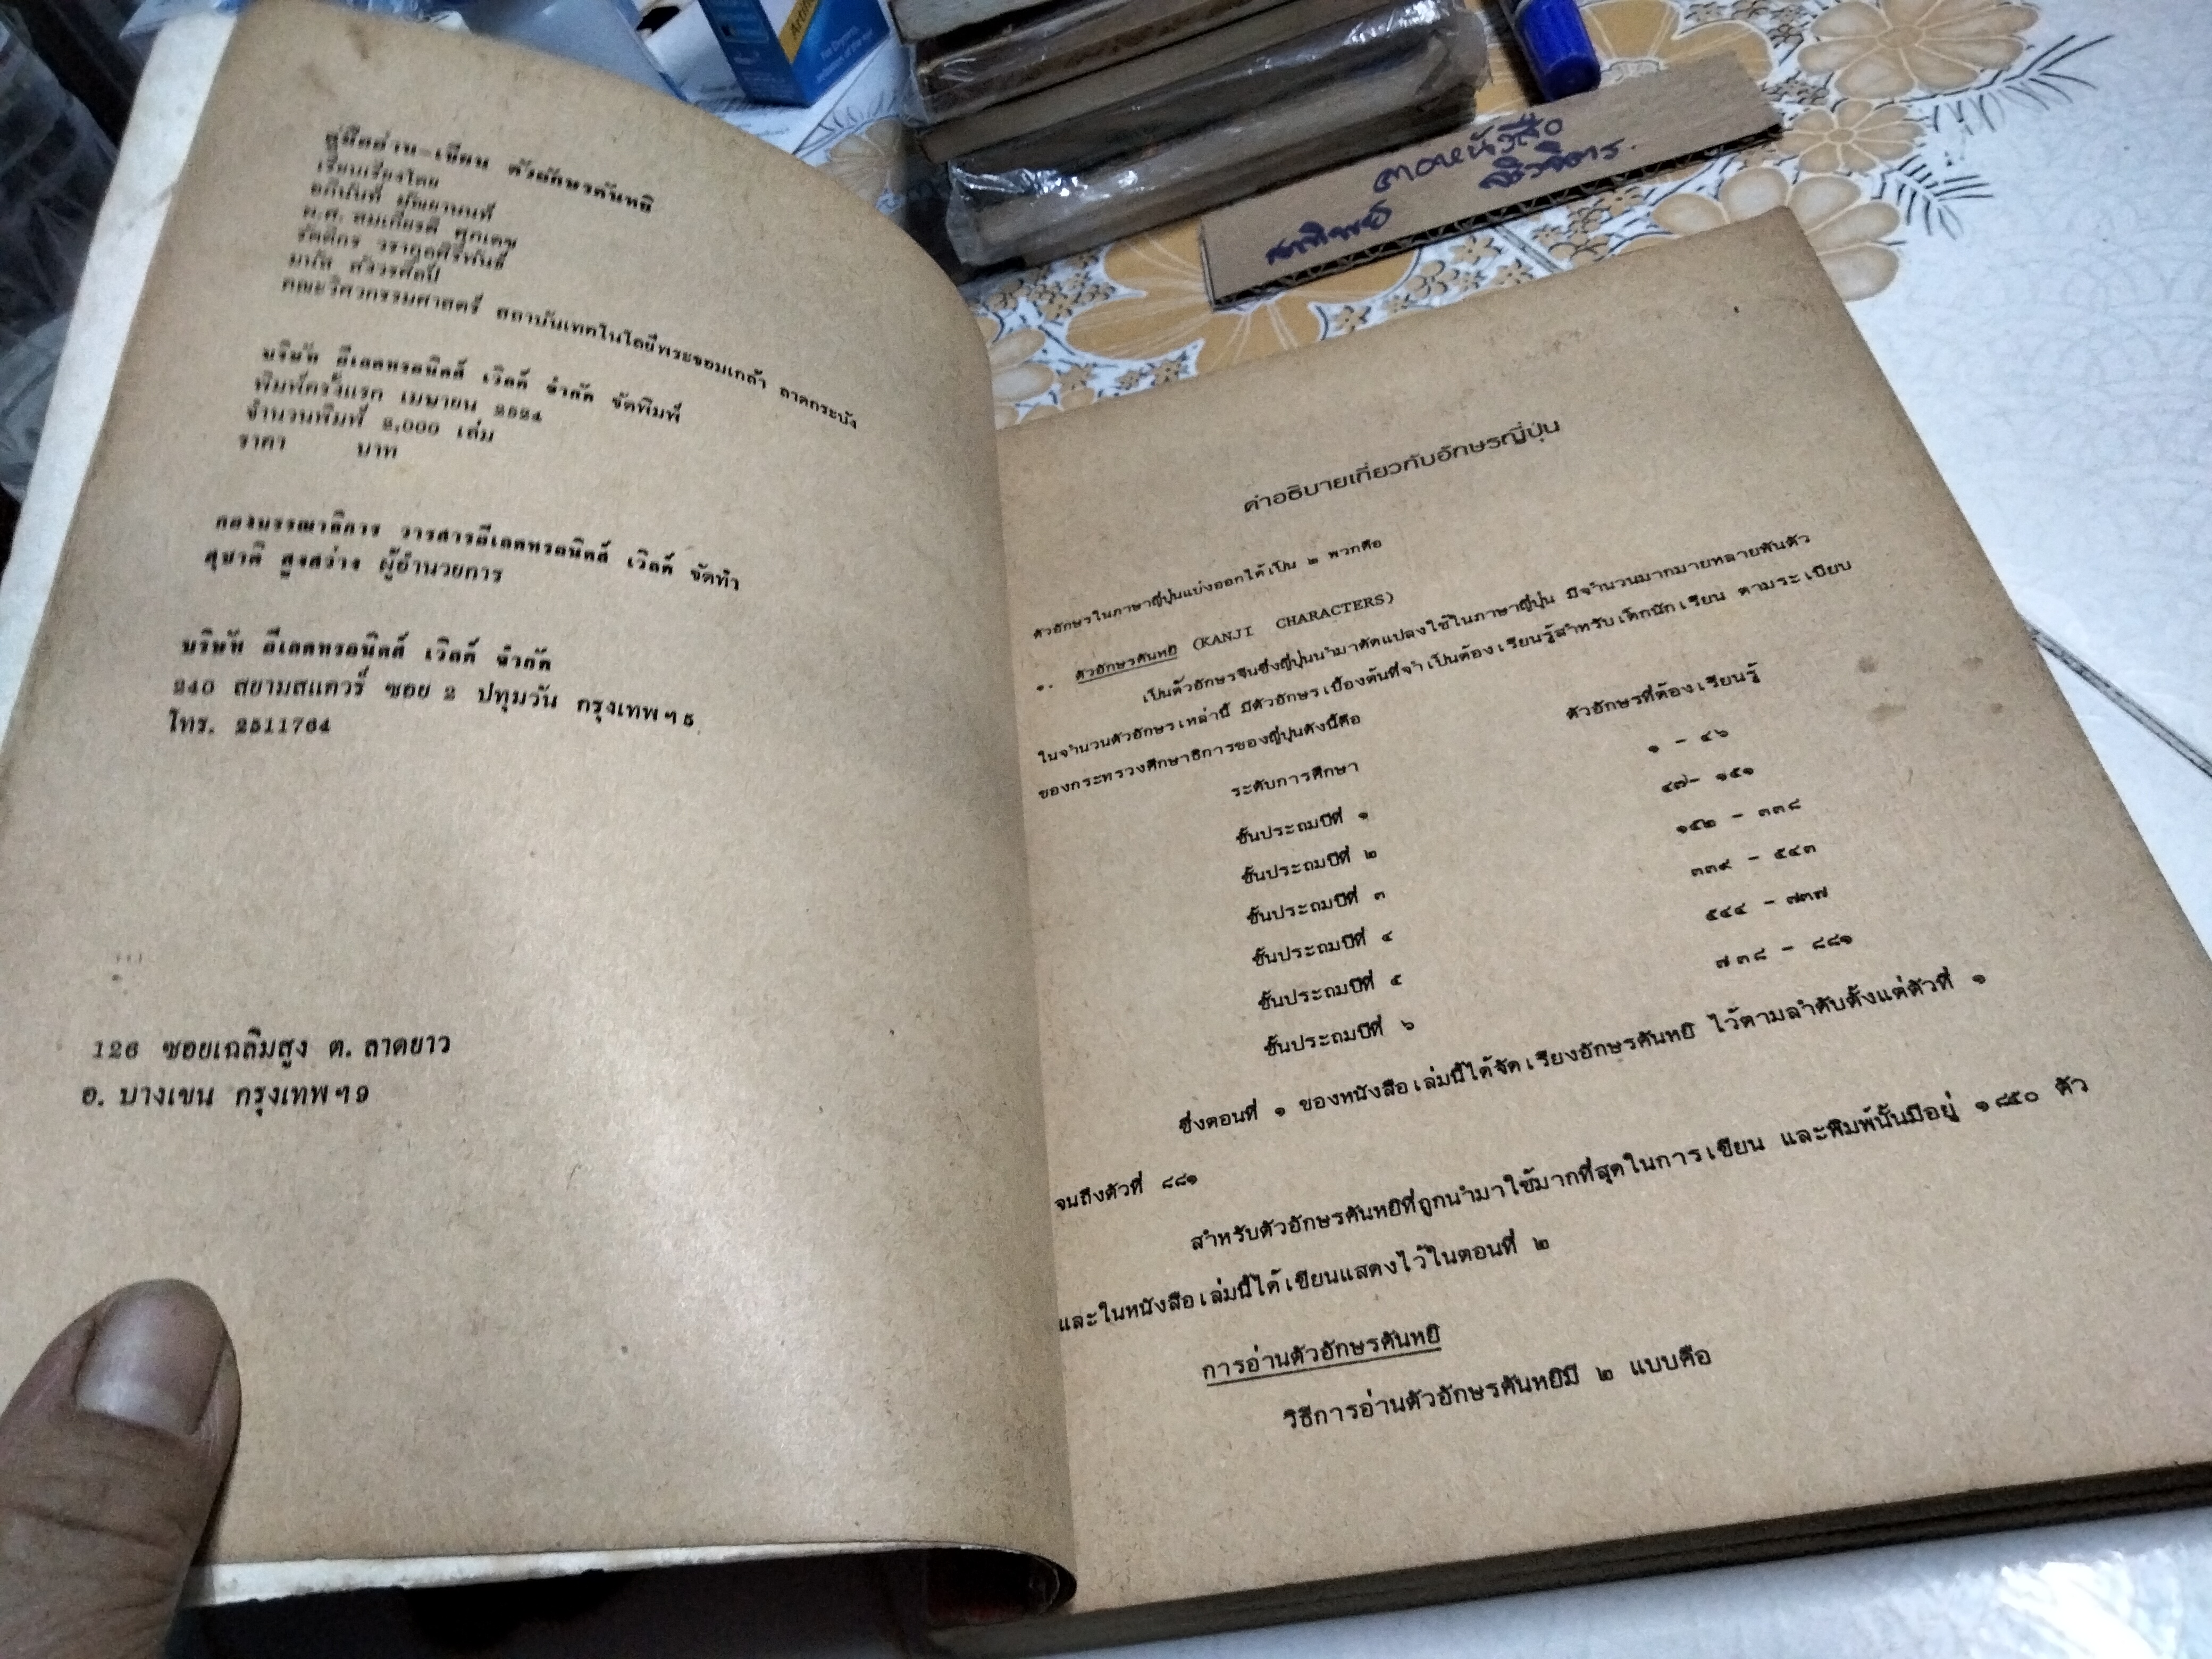 คู่มืออ่าน-เขียน ตัวอักษรคันหยิ
เรียบเรียงโดย
อภินันท์
ผ.ศ. สมเกียรติ ศุภเดช
รัตติกร วรากูลศิริพันธุ์
มนัส สังวรศิลป์
คณะวิศวกรรมศาสตร์ สถาบันเทคโนโลยีพระจอมเกล้า ลาดกระบัง
บริษัท อีเลคทรอนิคส์ เวิลด์ จำกัด จัดพิมพ์
พิมพ์ครั้งแรก เมษายน 2524
จำนวนพิมพ์ 2,000 เล่ม
ราคา บาท
กองบรรณาธิการ วารสารอีเลคทรอนิคส์ เวิลด์ จัดทำ
สุชาติ สูงสว่าง ผู้อำนวยการ
บริษัท อีเลคทรอนิคส์ เวิลด์ จำกัด
240 สยามสแควร์ ซอย 2 ปทุมวัน กรุงเทพฯ 5
โทร. 2511764
126 ซอยเฉลิมสูง ต. ลาดยาว
อ. บางเขน กรุงเทพฯ 9
คำอธิบายเกี่ยวกับอักษรญี่ปุ่น
ตัวอักษรในภาษาญี่ปุ่นแบ่งออกได้เป็น ๒ พวกคือ
๑. ตัวอักษรคันหยิ (KANJI CHARACTERS)
เป็นตัวอักษรจีนซึ่งญี่ปุ่นนำมาดัดแปลงใช้ในภาษาญี่ปุ่น มีจำนวนมากมายหลายพันตัว
ในจำนวนตัวอักษรเหล่านี้ มีตัวอักษรเบื้องต้นที่จำเป็นต้องเรียนรู้สำหรับเด็กนักเรียน ตามระเบียบ
ของกระทรวงศึกษาธิการของญี่ปุ่นดังนี้คือ
ระดับการศึกษา ตัวอักษรที่ต้องเรียนรู้
ชั้นประถมปีที่ ๑ ๑ - ๔๖
ชั้นประถมปีที่ ๒ ๔๗- ๑๕๑
ชั้นประถมปีที่ ๓ ๑๕๒ - ๓๓๘
ชั้นประถมปีที่ ๔ ๓๓๙ - ๕๔๓
ชั้นประถมปีที่ ๕ ๕๔๔ - ๗๓๗
ชั้นประถมปีที่ ๖ ๗๓๘ - ๘๘๑
ซึ่งตอนที่ ๑ ของหนังสือเล่มนี้ได้จัดเรียงอักษรคันหยิ ไว้ตามลำดับตั้งแต่ตัวที่ ๑
จนถึงตัวที่ ๘๘๑
สำหรับตัวอักษรคันหยิที่ถูกนำมาใช้มากที่สุดในการเขียน และพิมพ์นั้นมีอยู่ ๑๘๕๐ ตัว
และในหนังสือเล่มนี้ได้เขียนแสดงไว้ในตอนที่ ๒
การอ่านตัวอักษรคันหยิ
วิธีการอ่านตัวอักษรคันหยิมี ๒ แบบคือ